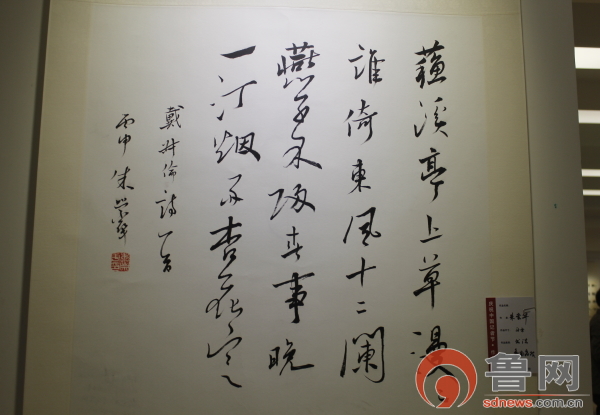 蘇溪亭上草漫々
誰倚東風十二闌
燕子不歸春事晚
一汀烟雨杏花寒
戴叔倫詩一首
丙申 朱
鲁网
sdnews.com.cn